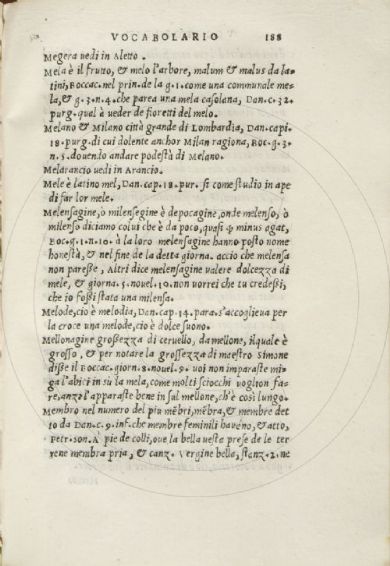 VOCABOLARIO 188
Megera uedi in Aletto .
Mela è il frutto, & melo l'arbore, malum & malus da la=
tini, Boccac. nel prin. de la g. 1. come una communale me=
la, & g. 3. n. 4. che parea una mela casolana, Dan. c. 32.
purg. qual à ueder de fioretti del melo.
Melano & Milano città grande di Lombardia, Dan. capi.
18. purg. di cui dolente anchor Milan ragiona, Boc. g. 3.
n. 5. douendo andare podestà di Melano.
Melarancio uedi in Arancio.
Mele è latino mel, Dan. cap. 18. pur. si come studio in ape
di far lor mele.
Melensagine, ò milensegine è depocagine, onde melenso, ò
milenso diciamo colui che è da poco, quasi q̃ minus agat,
Boc. g. 1. n. 10. à la loro melensagine hanno posto nome
honestà, & nel fine de la detta giorna. accio che melensa
non paresse, Altri dice melensagine ualere dolcezza di
mele, & giorna. 5. nouel. 10. non uorrei che tu credessi,
che io fossi stata una milensa.
Melode, cio è melodia, Dan. cap. 14. para. s'accoglieua per
la croce una melode, cio è dolce suono.
Mellonagine großezza di ceruello, da mellone, ilquale è
grosso, & per notare la grossezza di maestro Simone
disse il Boccac. giorn. 8. nouel. 9. uoi non imparaste mi=
ga l'abici in sù la mela, come molti sciocchi uoglion fa=
re, anzi l'apparaste bene in sul mellone, ch'è cosi lungo.
Membro nel numero del piu mẽbri, mẽbra, & membre det
to da Dan. c. 9. inf. che membre feminili haueno, & atto,
Petr. son. A piè de colli, oue la bella uesta prese de le ter
rene membra pria, & canz. Vergine bella, stanz. 2. ne